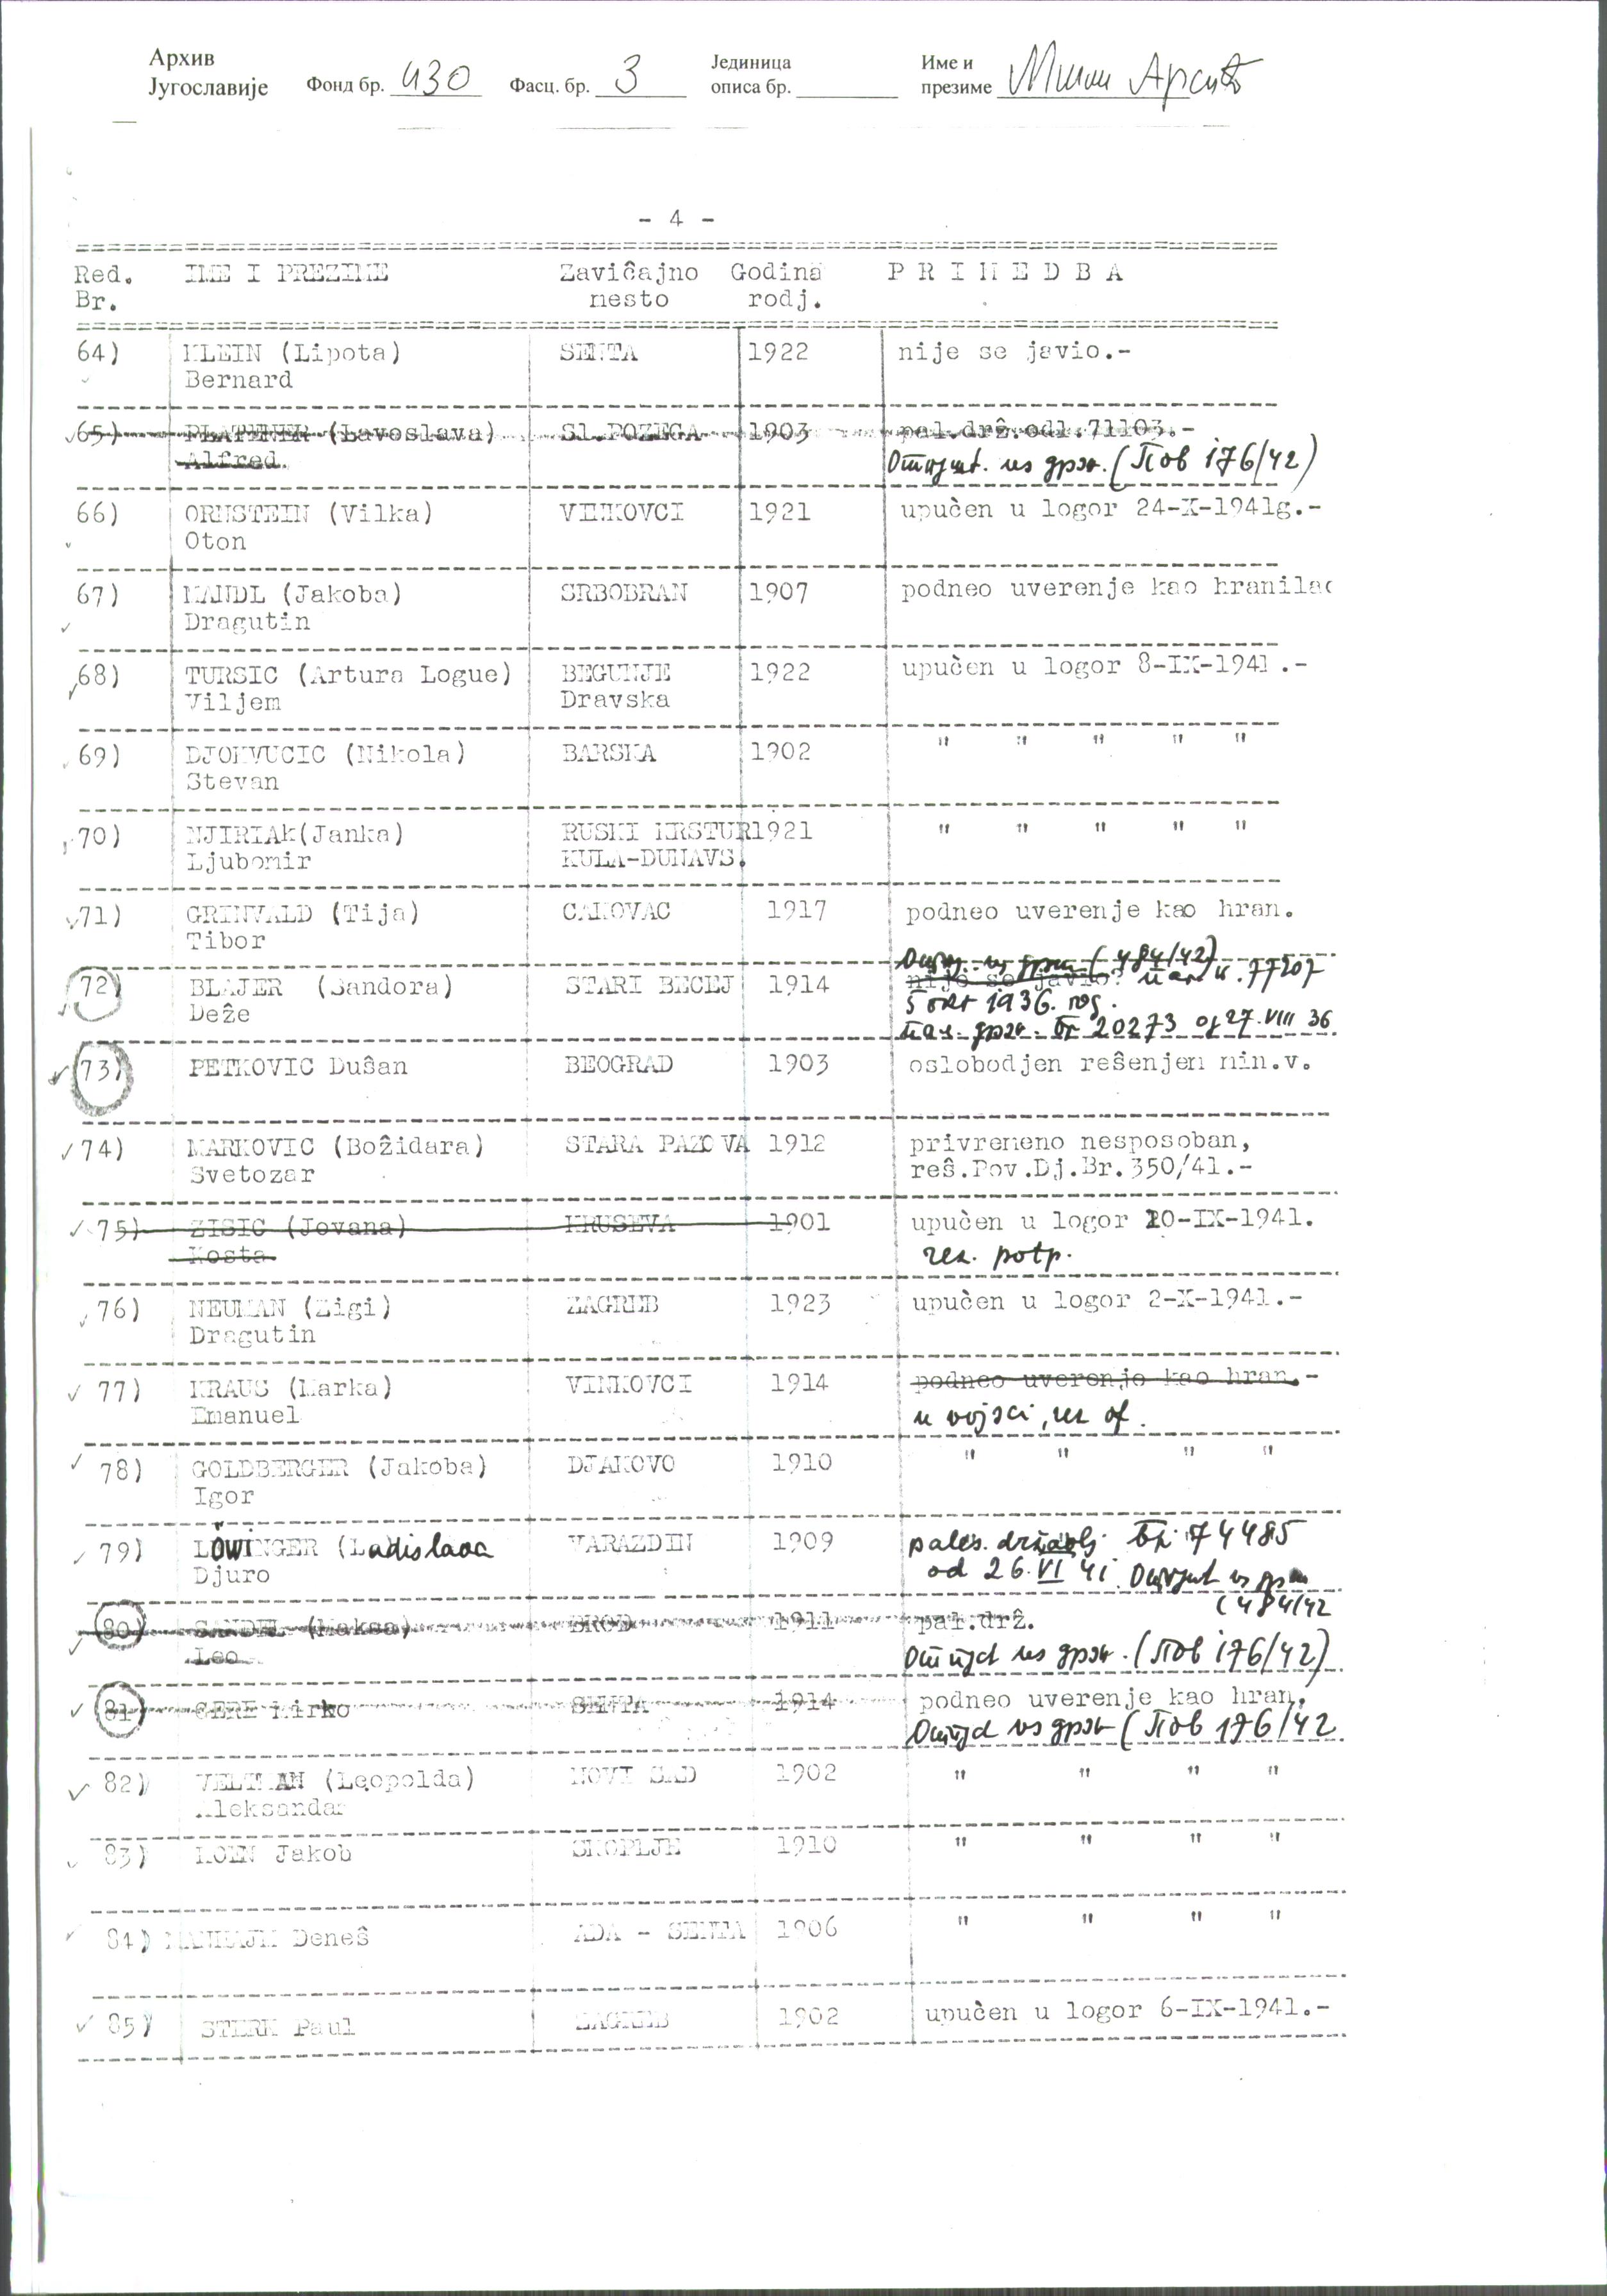 Архив
Југославије Фонд бр. 430 Фасц. бр. 3 Јединица описа бр. Име и презиме Милан Арсић
- 4 -
Red. IME I PREZIME Zavičajno Godina P R I M E D B A
Br. mesto rodj.
64) KLEIN (Lipota) SENTA 1922 nije se javio.-
Bernard
65) (Lavoslava) Sl.POZEGA 1903 pal.drž.odl.71103.-
Alfred. из држ. (Пов 176/42)
66) ORNSTEIN (Vilka) VINKOVCI 1921 upučen u logor 24-X-1941g.-
Oton
67) MANDL (Jakoba) SRBOBRAN 1907 podneo uverenje kao hranilac
Dragutin
68) TURSIC (Artura Logue) BEGUNJE 1922 upučen u logor 8-IX-1941.-
Viljem Dravska
69) DJOKVUCIC (Nikola) BARSKA 1902 " " " " "
Stevan
70) NJIRIAk(Janka) RUSKI KRSTUR 1921 " " " " "
Ljubomir KULA-DUNAVS.
71) GRINVALD (Tija) CAKOVAC 1917 podneo uverenje kao hran.
Tibor
(484/42)
72) BLAJER (Sandora) STARI BECEJ 1914 nije se javio? 77207
Deže 5 окт 1936. год.
пал. држ. Бр 20273 од 27. VIII 36
73) PETKOVIC Dušan BEOGRAD 1903 oslobodjen rešenjem min.v.
74) MARKOVIC (Božidara) STARA PAZOVA 1912 privremeno nesposoban,
Svetozar reš.Pov.Dj.Br.350/41.-
75) ZISIC (Jovana) KRUSEVA 1901 upučen u logor 20-IX-1941.
Kosta rez. potp.
76) NEUMAN (Zigi) ZAGREB 1923 upučen u logor 2-X-1941.-
Dragutin
77) KRAUS (Marka) VINKOVCI 1914 podneo uverenje kao hran.-
Emanuel u vojsci, rez of.
78) GOLDBERGER (Jakoba) DJAKOVO 1910 " " " "
Igor
79) LÖWINGER (Ladislava VARAZDIN 1909 pales. državlj Бр. 74485
Djuro od 26. VI 41.
(484/42
80) (Maksa) BROD 1911 pal.drž.
Leo из држ. (Пов 176/42)
81) GERE Mirko SENTA 1914 podneo uverenje kao hran.
из држ (Пов 176/42
82) VELTMAN (Leopolda) NOVI SAD 1902 " " " "
Aleksandar
83) KOEN Jakob SKOPLJE 1910 " " " "
84) Deneš ADA - SENTA 1906 " " " "
85) STERK Paul ZAGREB 1902 upučen u logor 6-IX-1941.-